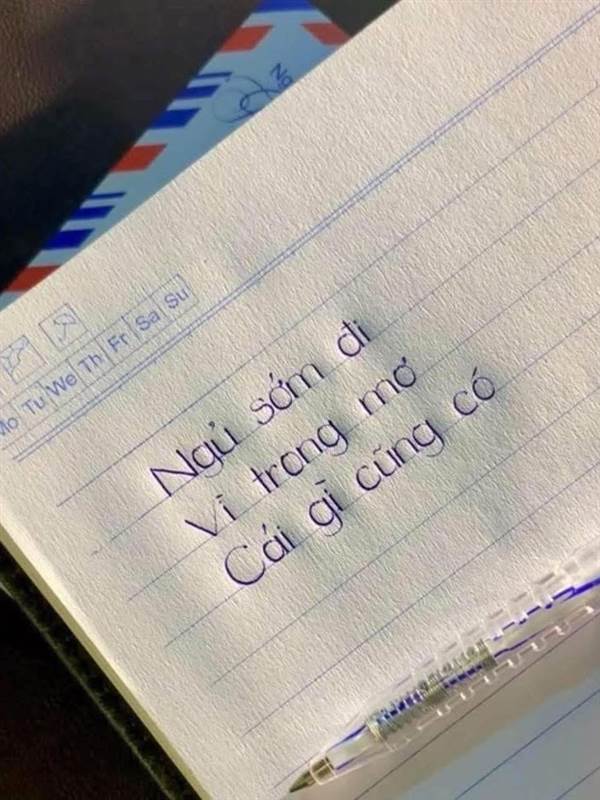 Mo Tu We Th Fr Sa Su
Ngủ sớm đi
vì trong mơ
Cái gì cũng có